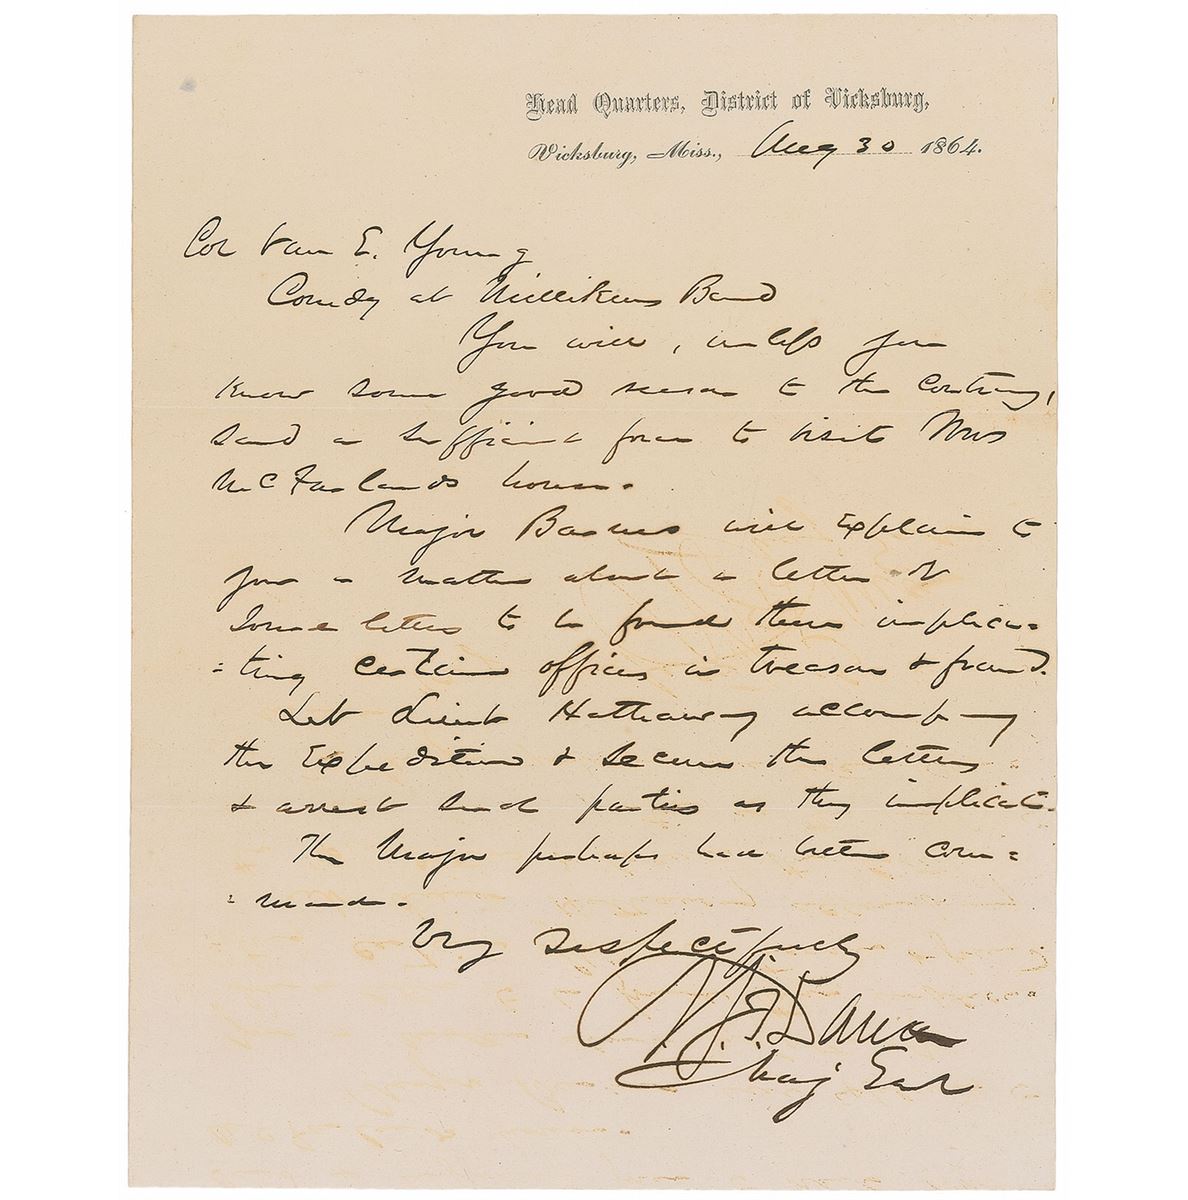 Head Quarters, District of Vicksburg,
Vicksburg, Miss., Aug 30 1864.
Col Van E. Young
Comdg at Millikens Bend
You will, unless you
know some good reason to the contrary,
send a sufficient force to visit Mrs
McFarlands house.
Major Barnes will explain to
you a matter about a letter or
some letters to be found there implica=
=ting certain officers in treason & fraud.
Let Lieut Hathaway accompany
the Expedition & secure the letters
& arrest such parties as they implicate.
The Major perhaps had better com=
=mand.
Very respectfully
N.J.T. Dana
Maj Genl